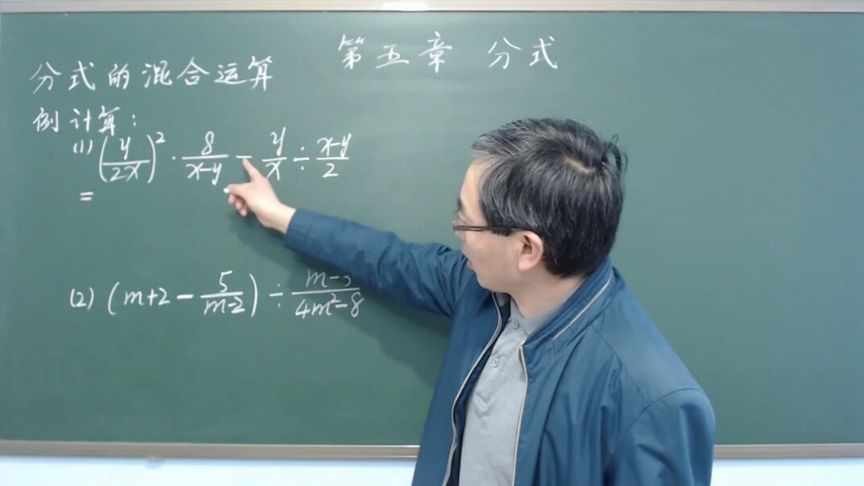 第五章 分式
分式的混合运算
例 计算:
(1) (y/2x)² · 8/(x-y) - y/x ÷ (x-y)/2
=
(2) (m+2 - 5/(m-2)) ÷ (m-3)/(4m²-8)